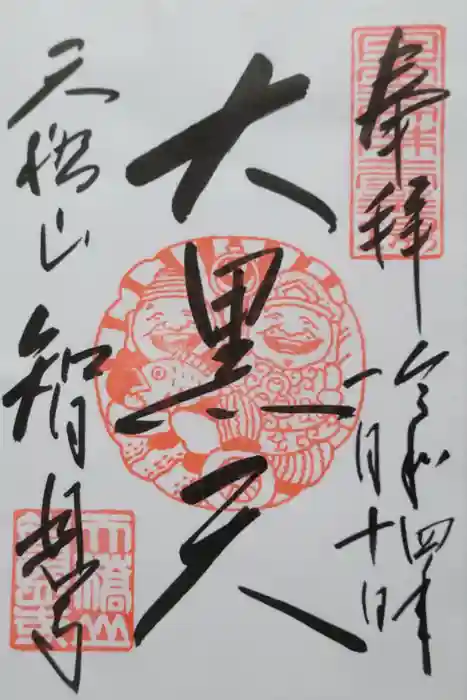 奉拝
令和四年
一月十日
大黒天
天橋山
智恩寺